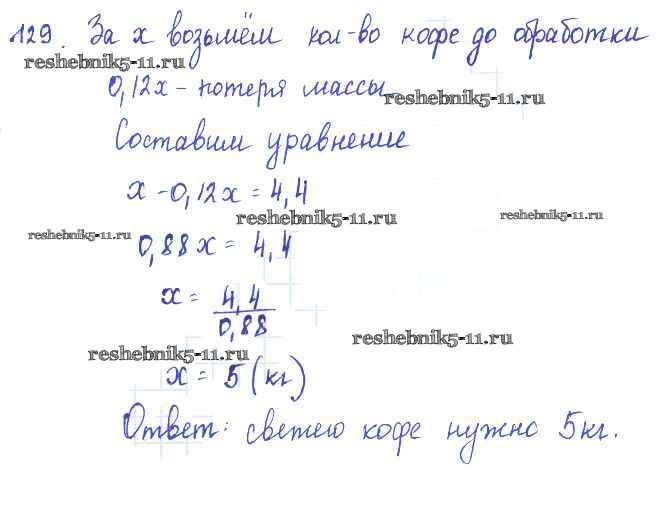 129. За х возьмём кол-во кофе до обработки
reshebnik5-11.ru
0,12х - потеря массы
reshebnik5-11.ru
Составим уравнение
х - 0,12х = 4,4
reshebnik5-11.ru
reshebnik5-11.ru
reshebnik5-11.ru
0,88х = 4,4
х = 4,4
0,88
reshebnik5-11.ru
reshebnik5-11.ru
х = 5 (кг)
Ответ: свежего кофе нужно 5 кг.